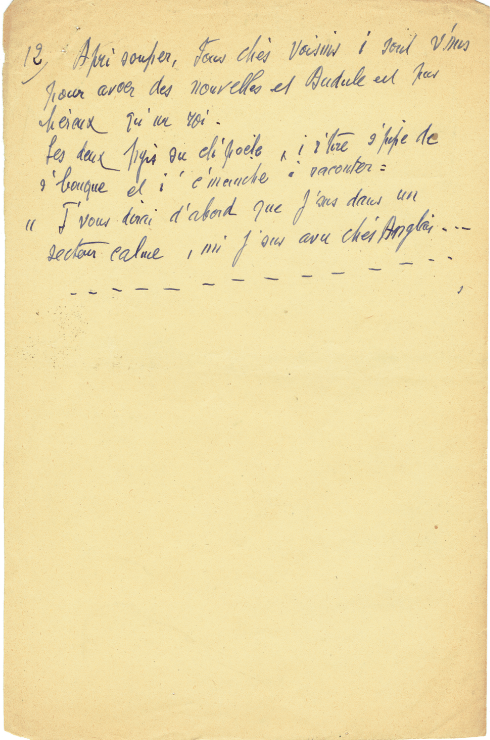 12) Apri souper, Tous chés voisins i sont v'nus
pour avoer des nouvelles et Dudule est pus
héreux qu'un roi.
Les deux pigis su ch'poële, i r'tire s'pipe de
s'bouque et i c'minche à raconter :
" J'vous dirai d'abord que j'sus dans un
secteur calme, mi j'sus avu chés Anglais ---